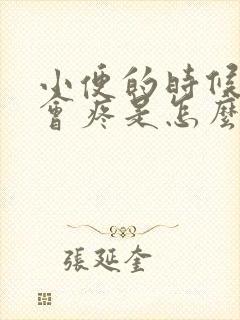 小便的時候
會疼是怎麼
張延奎